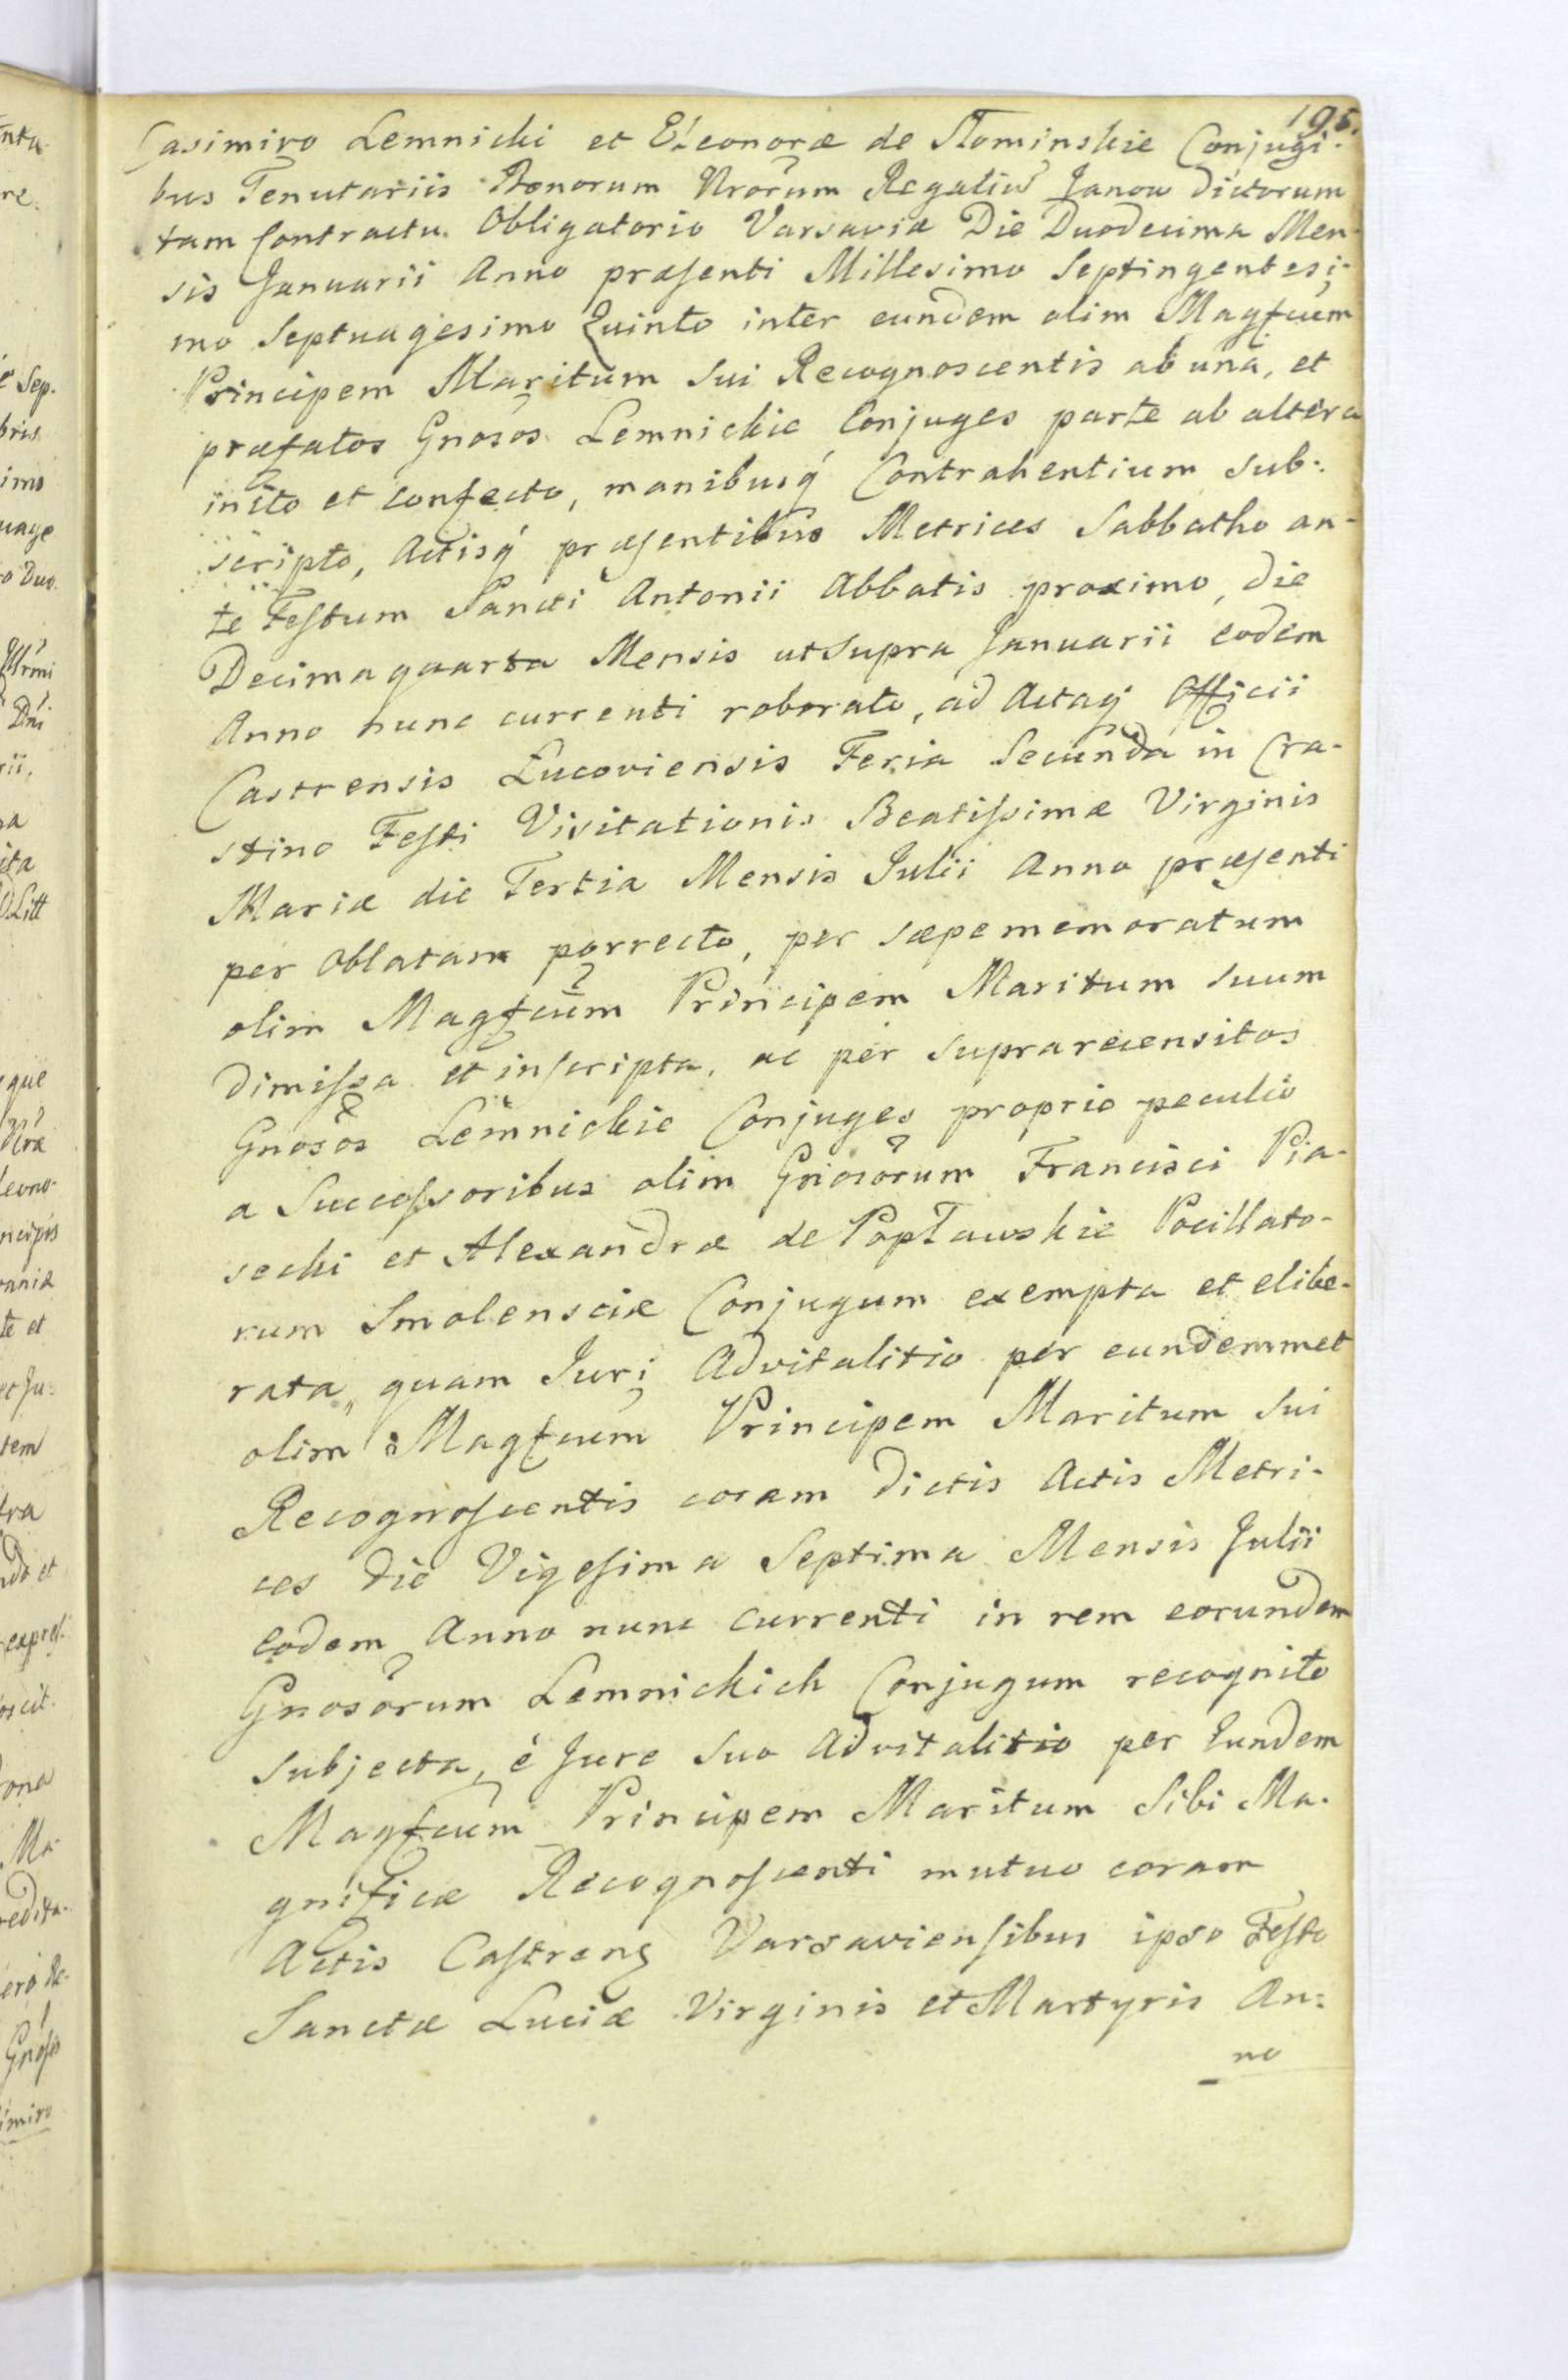 195.
Casimiro Lemnicki et Eleonoræ de Słominskie Conjugi-
bus Tenutariis Bonorum Nrorum Regaliu Janow dictorum
tam Contractu Obligatorio Varsaviæ Die Duodecima Men-
sis Januarii Anno præsenti Millesimo Septingentesi-
mo Septuagesimo Quinto inter eundem olim Magfcum
Principem Maritum Sui Recognoscentis ab una, et
præfatos Gnosos Lemnickie Conjuges parte ab altera
inito et confecto, manibusq́ Contrahentium sub-
scripto, Actisq́ præsentibus Metrices Sabbatho an-
te Festum Sancti Antonii Abbatis proximo, die
Decima quarta Mensis ut supra Januarii eodem
Anno nunc currenti roborato, ad Actaq́ Officii
Castrensis Lucoviensis Feria Secunda in Cra-
stino Festi Visitationis Beatissimæ Virginis
Mariæ die Tertia Mensis Julii Anno præsenti
per Oblatam porrecto, per sæpe memoratum
olim Magfcum Principem Maritum suum
dimissa et inscripta, ac per suprarecensitos
Gnosos Lemnickie Conjuges proprio peculio
a Successoribus olim Gnosorum Francisci Pia-
secki et Alexandræ de Popławskie Pocillato-
rum Smolensciæ Conjugum exempta et elibe-
rata, quam Juri Advitalitio per eundemmet
olim Magfcum Principem Maritum Sui
Recognoscentis coram dictis Actis Metri-
ces die Vigesima Septima Mensis Julii
eodem Anno nunc currenti in rem eorundem
Gnosorum Lemnickich Conjugum recognito
subjecta, è Jure suo Advitalitio per Eundem
Magfcum Principem Maritum Sibi Ma-
gnificæ Recognoscenti mutuo coram
Actis Castreng Varsaviensibus ipso Festo
Sanctæ Luciæ Virginis et Martyris An-
no